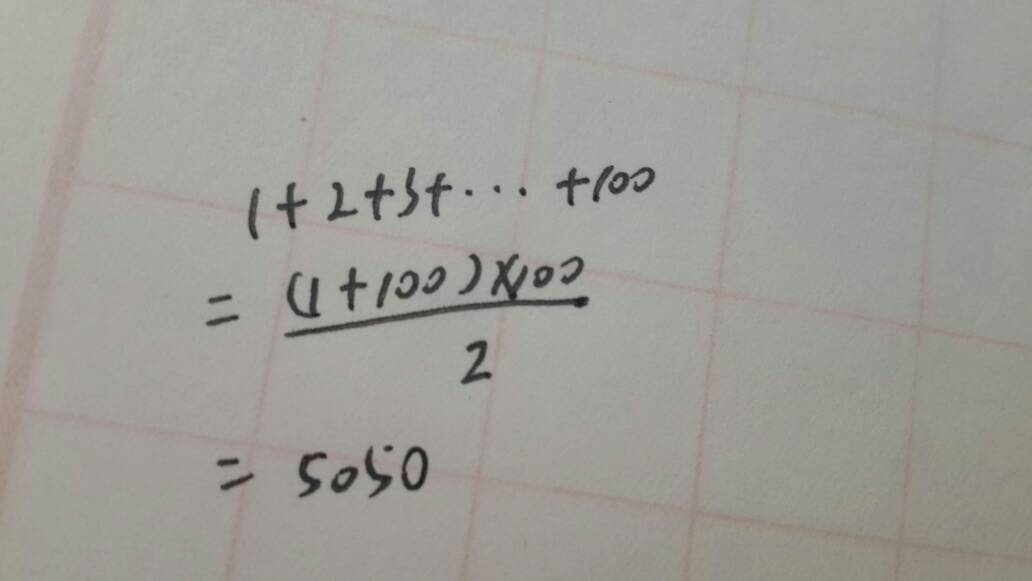 1+2+3+...+100
=(1+100)×100
2
=5050